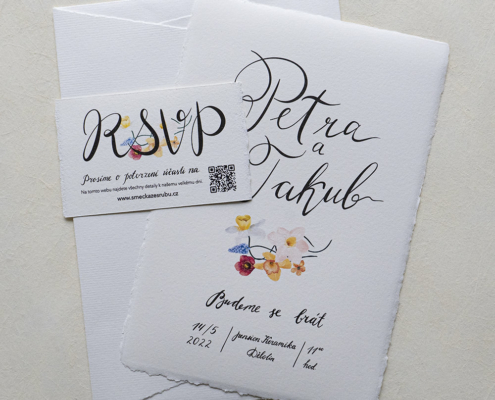 RSVP
Prosíme o potvrzení účasti na
Na tomto webu najdete všechny detaily k našemu velkému dni.
www.smeckazesrubu.cz
Petra
a
Jakub
Budeme se brát
14/5 2022 | Pension Keramika | 11⁰⁰ hod